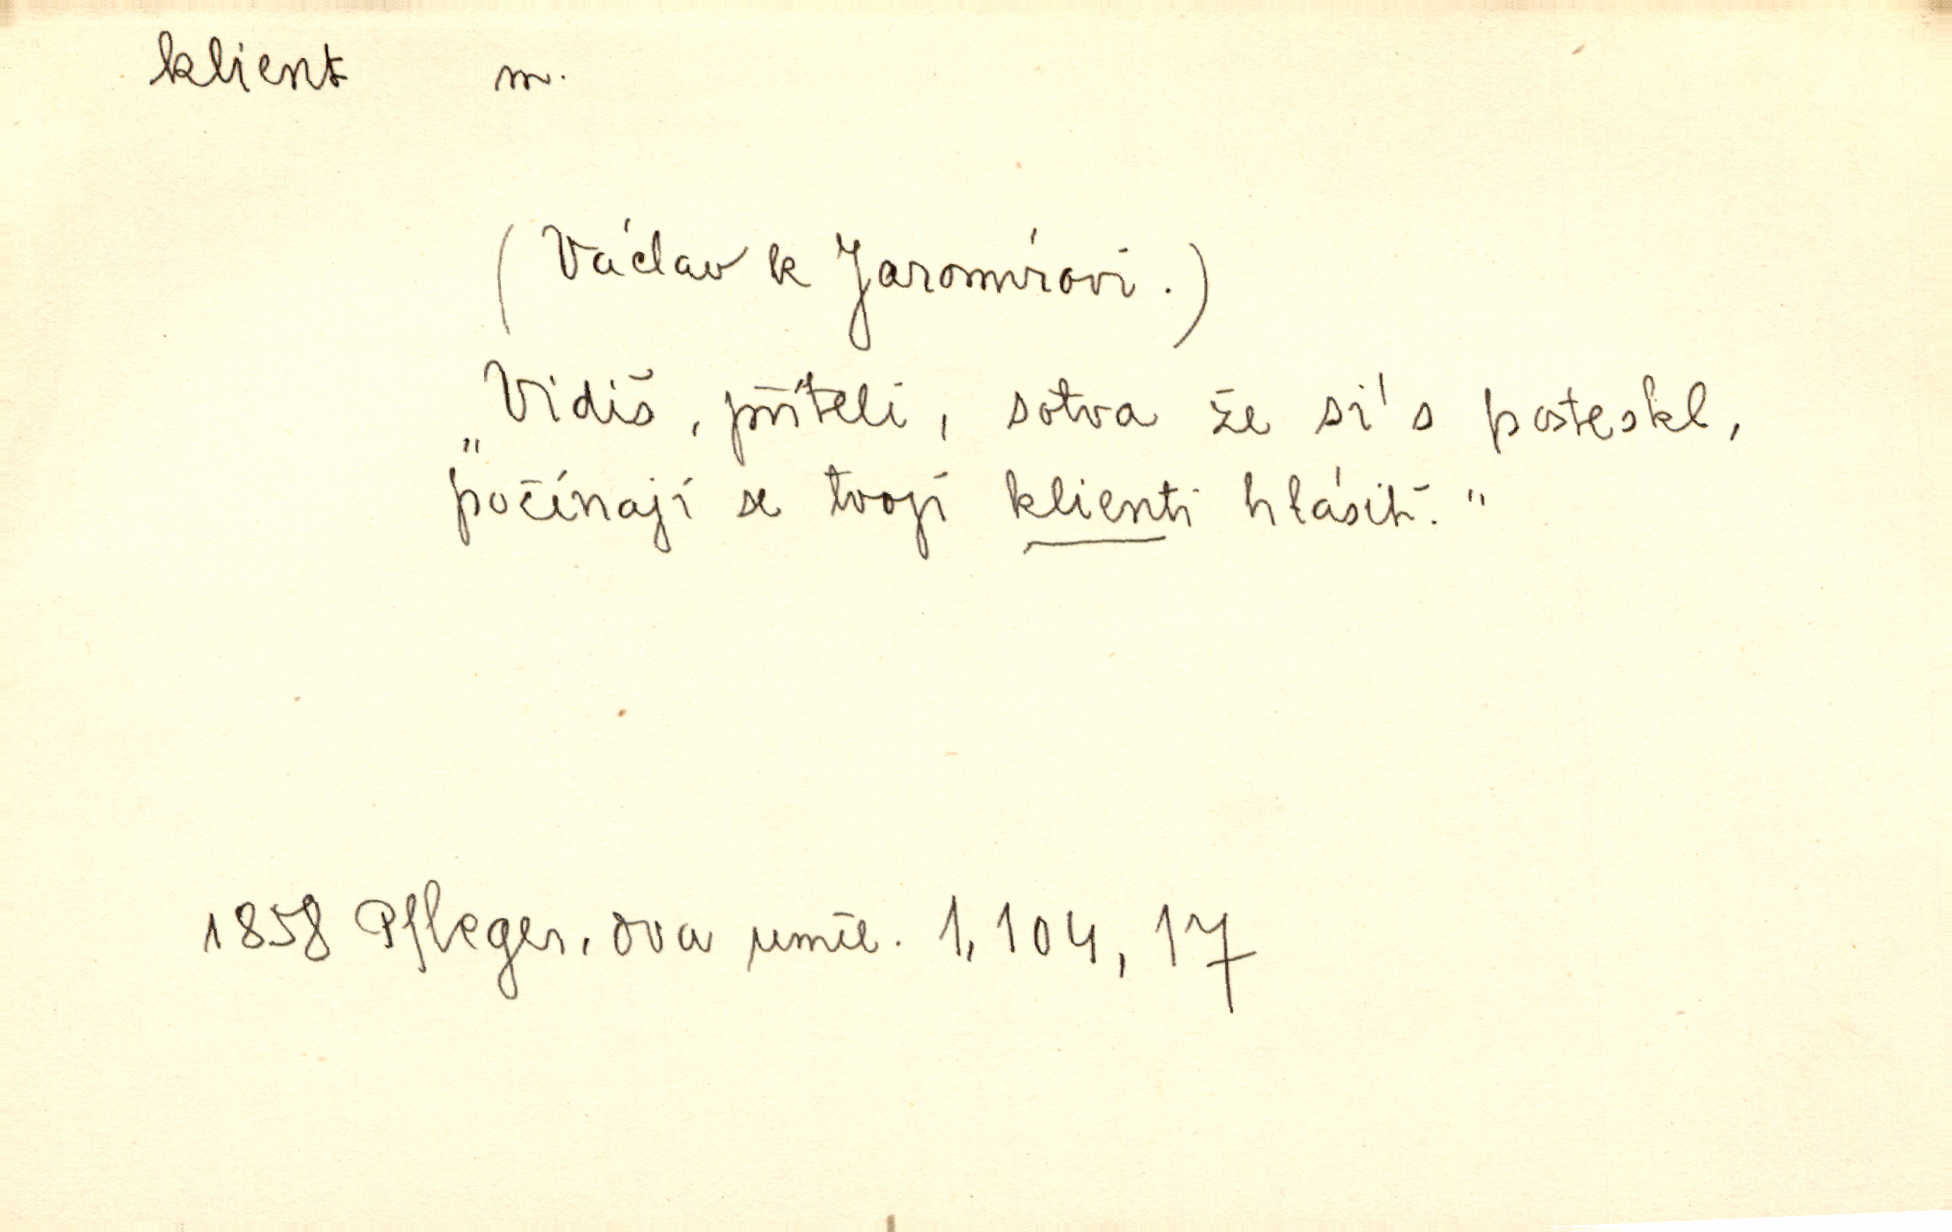 klient m.
(Václav k Jaromírovi.)
„Vidiš, příteli, sotva že si's posteskl,
počínají se tvoji klienti hlásiti."
1858 Pfleger, dva uměl. 1, 104, 17